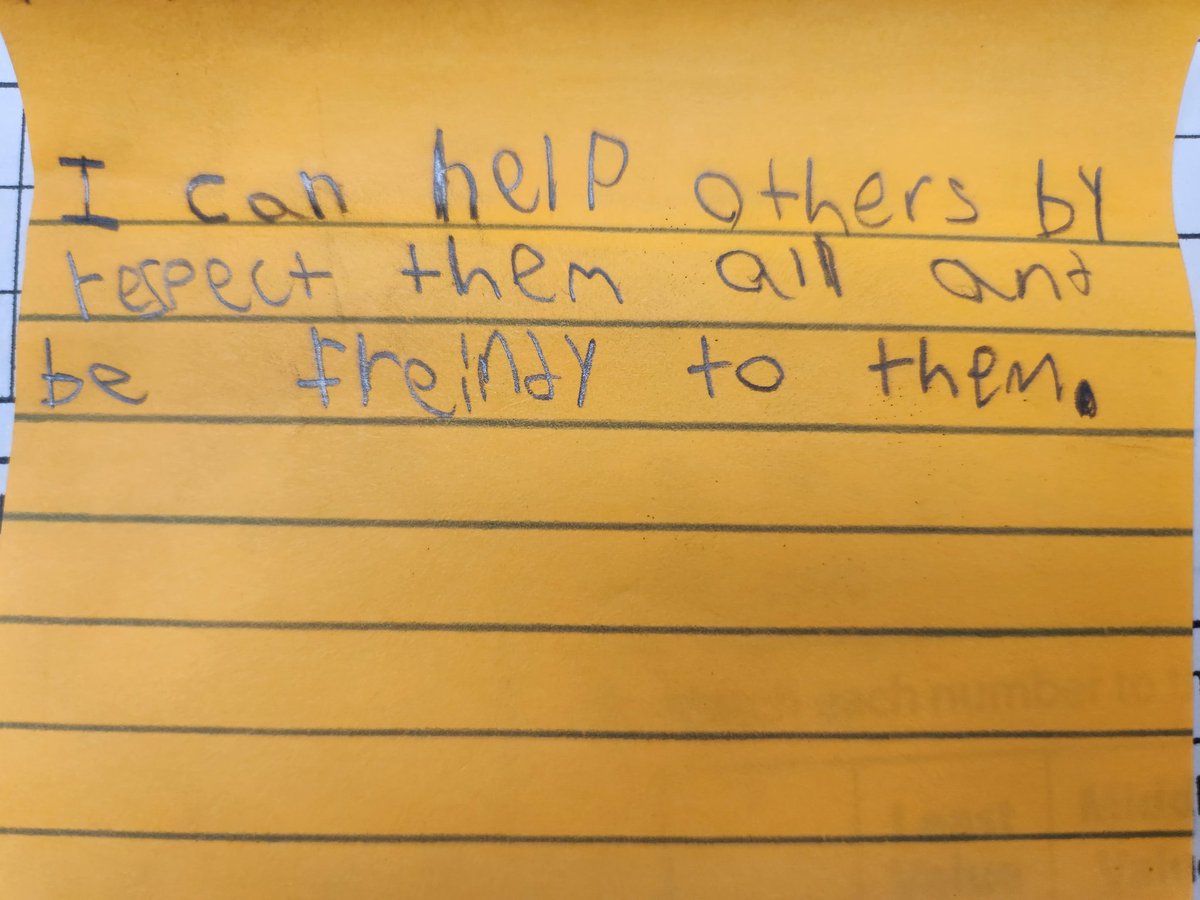 I can help others by
respect them all and
be freindy to them.
each number to
Least